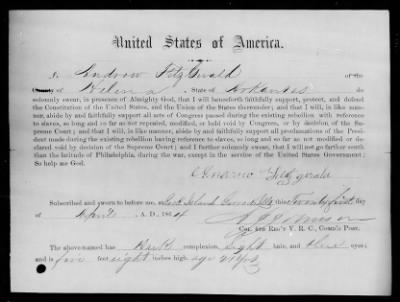 United States of America.
I Andrew Fitzgerald of the
County of Helena, State of Arkansas do
solemnly swear, in presence of Almighty God, that I will henceforth faithfully support, protect, and defend
the Constitution of the United States, and the Union of the States thereunder; and that I will, in like man-
ner, abide by and faithfully support all acts of Congress passed during the existing rebellion with reference
to slaves, so long and so far as not repealed, modified, or held void by Congress, or by decision of the Su-
preme Court; and that I will, in like manner, abide by and faithfully support all proclamations of the Presi-
dent made during the existing rebellion having reference to slaves, so long and so far as not modified or de-
clared void by decision of the Supreme Court; and I further solemnly swear, that I will not go farther south
than the latitude of Philadelphia, during the war, except in the service of the United States Government:
So help me God.
Andrew Fitzgerald
Subscribed and sworn to before me, Rock Island Barracks Ills this Twenty first day
of April A. D., 1864
Col. 4th Reg't V. R. C., Comd'g Post.
The above-named has complexion, light hair, and blue eyes;
and is five feet eight inches high. age 21 yrs